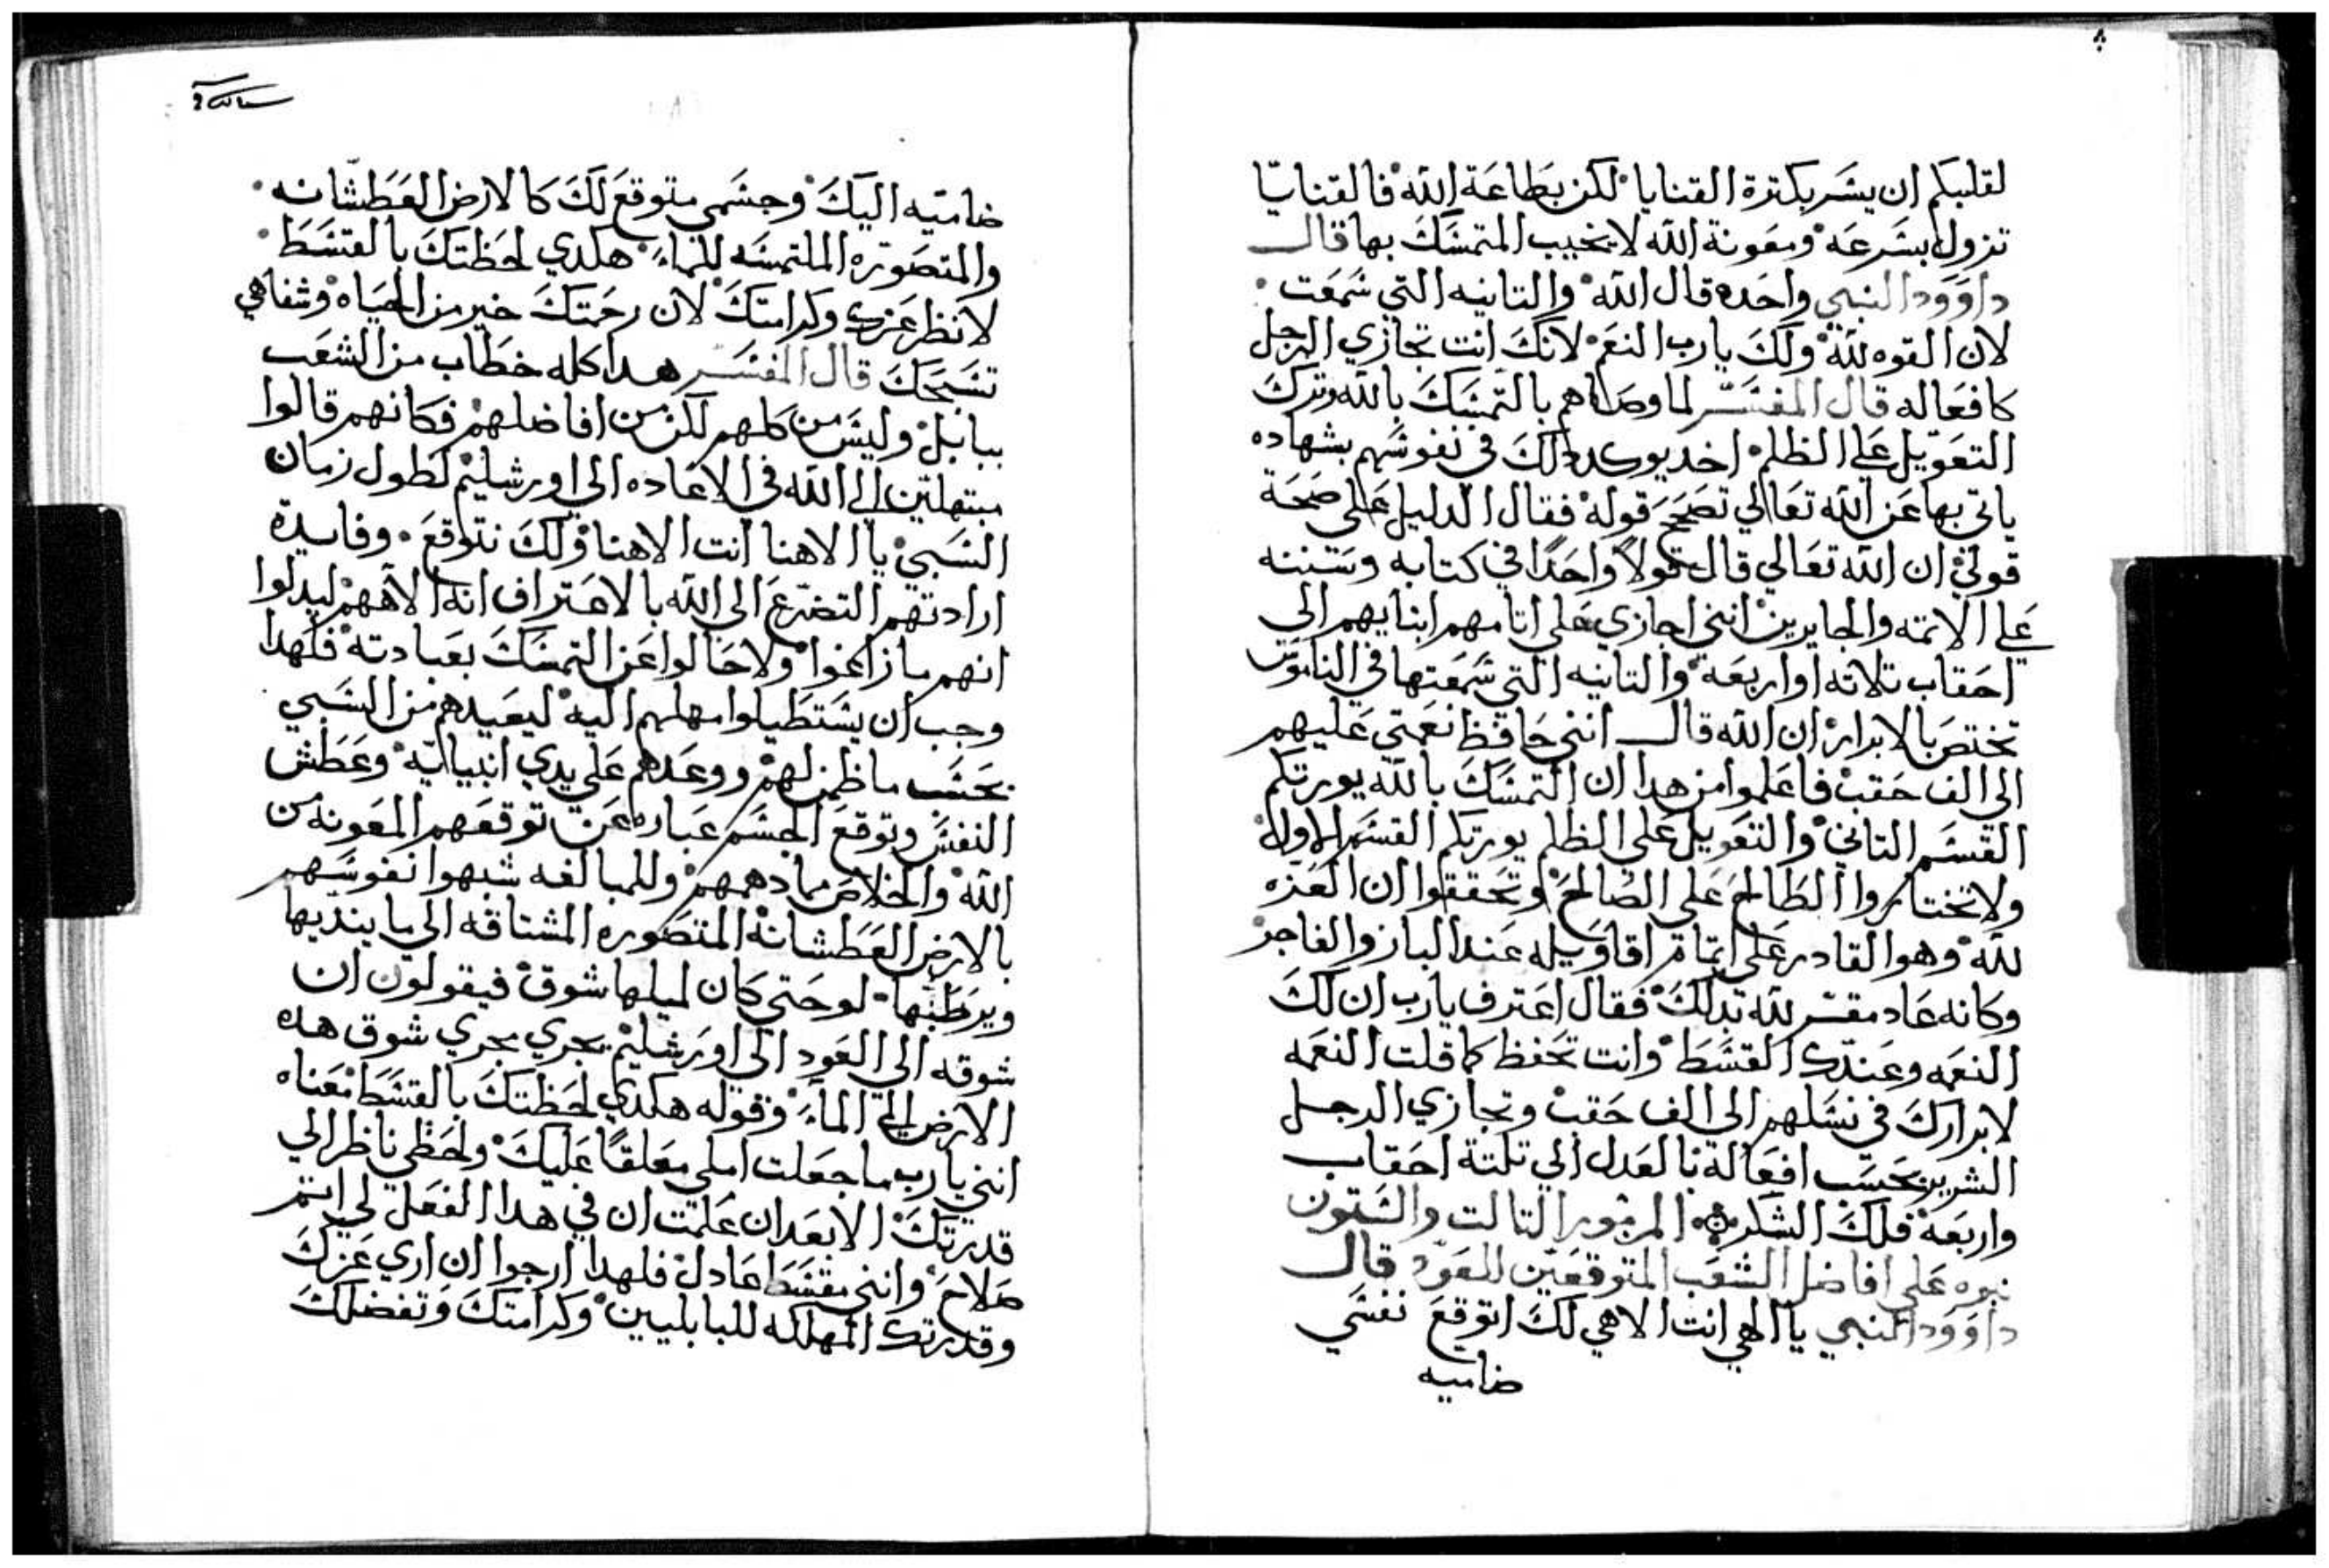 ٨
لقلبكم ان يسَر بكترة القنايا لكن بطَاعَة الله فالقنايا
تزول بسَرعَه ومعَونة الله لا تخيب المتمسَك بها قال
داوَود النبي واحَده قال الله والتانيه التي سَمعَت
لان القوه لله ولك يا رب النعَم لانك انت تجازي الرجل
كافعَاله قال المفسَر لما وصَاهم بالتمسَك بالله وترك
التعَويل علي الظلم اخد يوكد دلك في نفوسَهم بشهاده
ياتي بها عَن الله تعَالي تصَحح قوله فقال الدليل عَلي صَحَة
قولي ان الله تعَالي قال قولاً واحَداً في كتابه وسَننه
عَلي الاتمه والجايرين انني اجازي عَلي اتامهم ابنايهم الي
احَقاب تلاته او اربعَه والتانيه التي سَمعَتها في الناموسَ
تختصَ بالابرار ان الله قال انني حَافظ نعَمتي عَليهم
الي الف حَقب فاعَلموا من هدا ان التمسَك بالله يورتكم
القسَم التاني والتعَويل عَلي الظلم يورتكم القسَم الاول
ولا تختاروا الطَالح عَلي الصَالح وتحَققوا ان العَزه
لله وهوا القادر عَلي اتمام اقاويله عَند البار والفاجر
وكانه عَاد مقسّر لله بدلك فقال اعَترف يا رب ان لك
النعَمه وعَندك القسَط وانت تحَفظ كما قلت النعَمه
لابرارك في نسَلهم الي الف حَقب وتجازي الرجل
الشرير بحَسَب افعَاله بالعَدل الي تلتة احَقاب
واربعَه فلك الشكر المزمور التالت والسَتون
نبوه عَلي افاضل الشعَب المتوقعَين للعَود قال
داوَود النبي يا الهي انت الاهي لك اتوقعَ نفسَي
ضاميه
ضاميه اليك وجسَمي متوقعَ لك كالارض العَطَشانه
والمتصَوره الملتمسَه للماء هكدي لحَظتك بالقسَط
لانظر عَزك وكرامتك لان رحَمتك خير من الحَياه وشفاهي
تسَبحَك قال المفسَر هدا كله خطَاب من الشعَب
ببابل وليسَ من كلهم لكن من افاضلهم فكانهم قالوا
مبتهلين الي الله في الاعَاده الي اورشليم لطَول زمان
السَبي يا الاهنا انت الاهنا ولك نتوقعَ وفايدة
ارادتهم التضرعَ الي الله بالاعَتراف انه الاههم ليدلوا
انهم ما زاغوا ولا حَالوا عَن التمسَك بعَبادته فلهدا
وجب ان يسَتطَيلوا مهلهم اليه ليعَيدهم من السَبي
بحَسَب ما ظمن لهم ووعَدهم عَلي يدي انبيائيه وعَطَش
النفسَ وتوقعَ الجسَم عَباره عَن توقعَهم المعَونه من
الله والخلاصَ مما دهمهم وللمبالغه شبهوا نفوسَهم
بالارض العَطَشانه المتصَوره المشتاقه الي ما ينديها
ويرطَبها لو حَتي كان لميلها شوق فيقولون ان
شوقه الي العَود الي اورَشليم يجري مجري شوق هده
الارض الي الماء وقوله هكدي لحَظتك بالقسَط معَناه
انني يا رب ما جعَلت املي معَلقاً عَليك ولحَظي ناظر الي
قدرتك الا بعَد ان عَلمت ان في هدا الفعَل لي اتم
صَلاح وانني بقسَط عَادل فلهدا ارجوا ان اري عَزك
وقدرتك المهلكه للبابليين وكرامتك وتفضلك